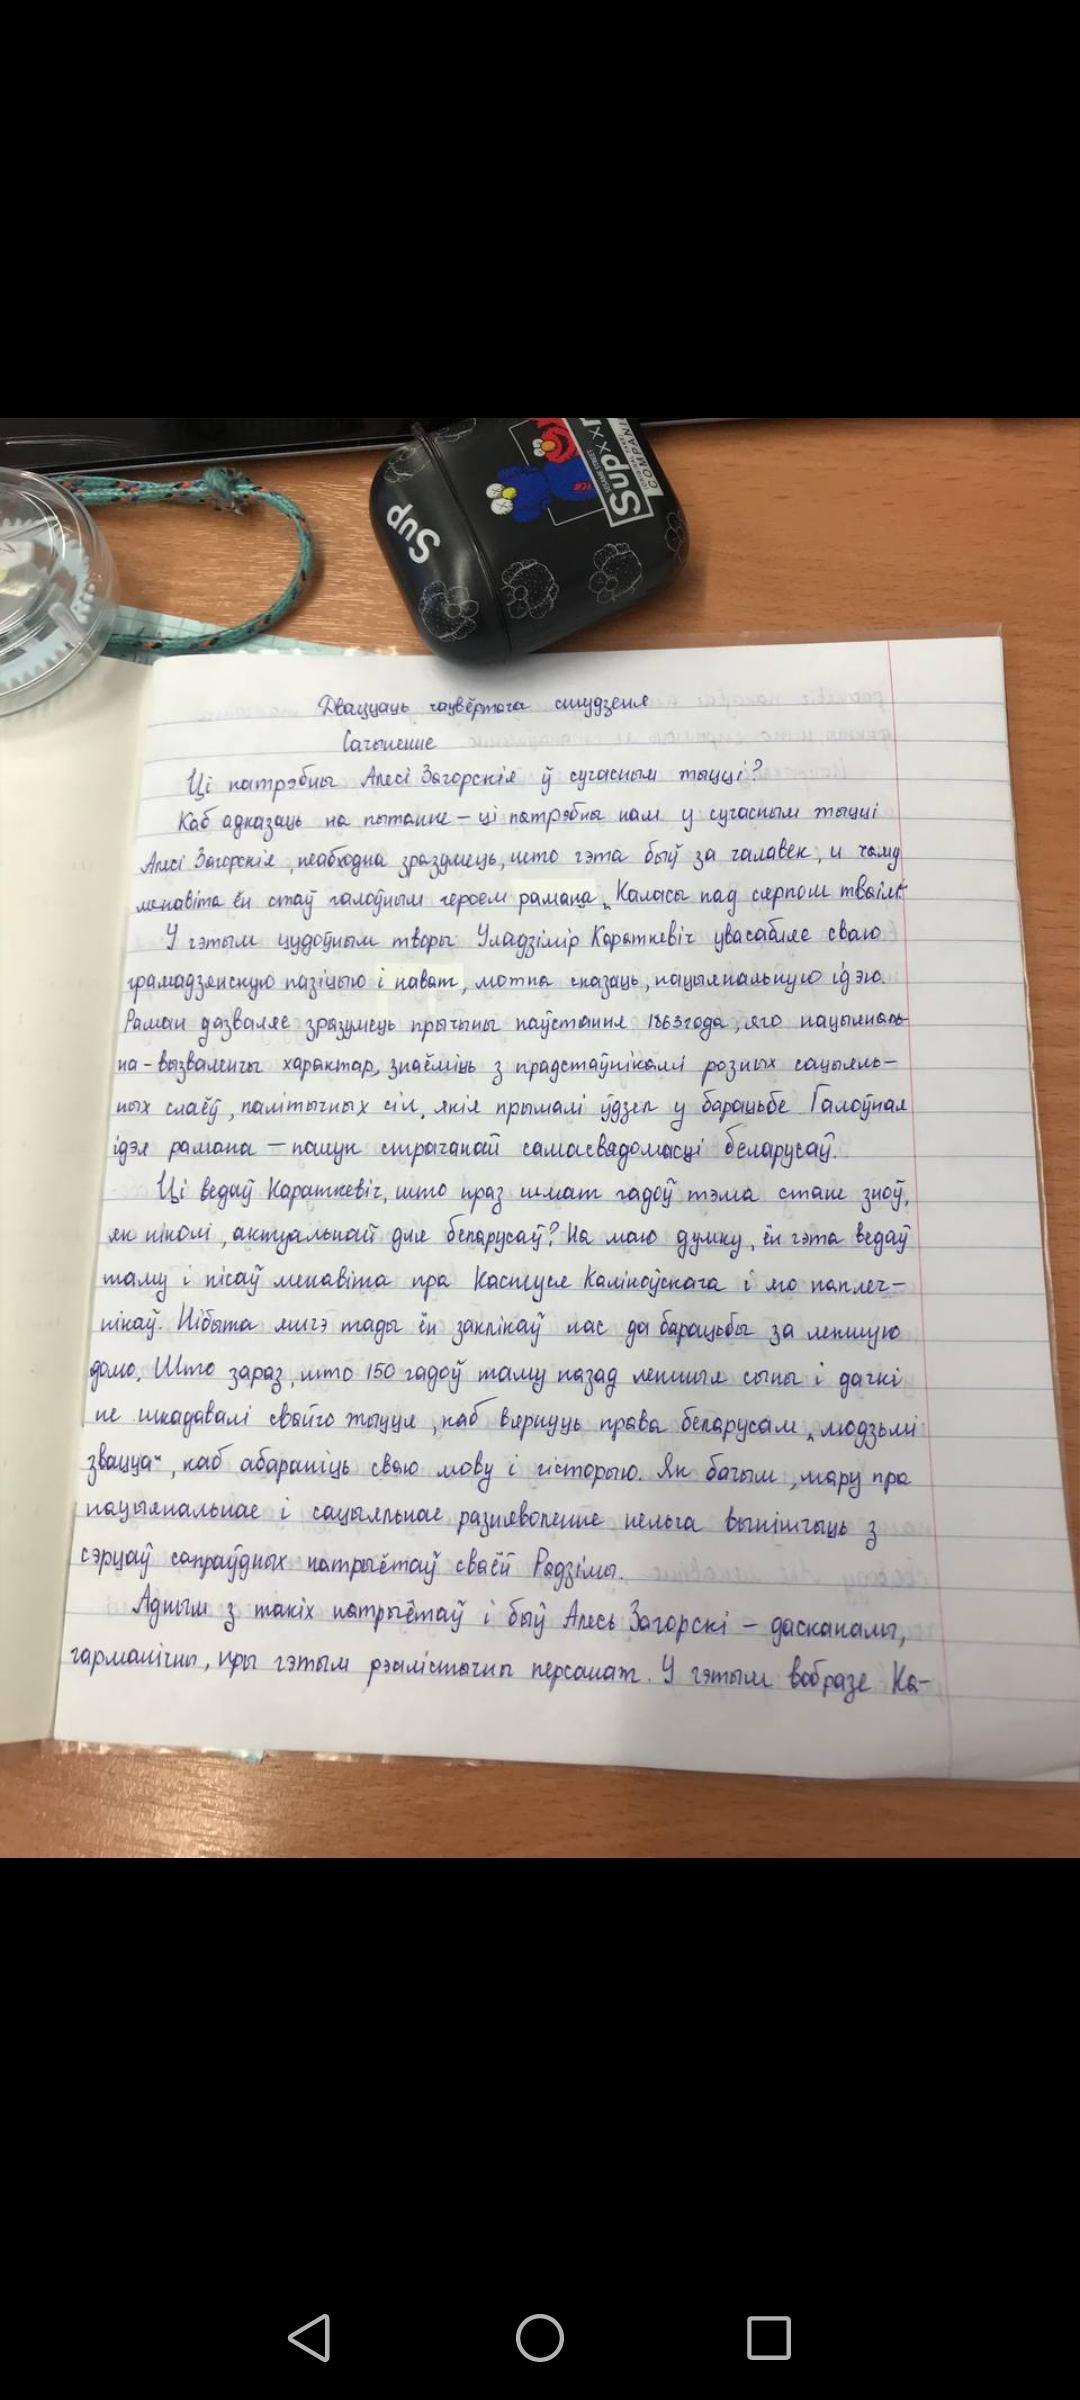 Sup
Supx
COMPANI
Дваццаць чацвёртага студзеня
Сачыненне
Ці патрэбны Алесі Загорскія ў сучасным жыцці?
Каб адказаць на пытанне – ці патрэбны нам у сучасным жыцці
Алесі Загорскія, неабходна зразумець, што гэта быў за чалавек, и чаму
менавіта ён стаў галоўным героем рамана „Каласы пад сярпом тваім“
У гэтым цудоўным творы Уладзімір Караткевіч увасабляе сваю
грамадзянскую пазіцыю і нават, можна сказаць, нацыянальную ідэю.
Раман дазваляе зразумець прычыны паўстання 1863 года, яго нацыяналь-
на-вызваленчы характар, знаёміць з прадстаўнікамі розных сацыяль-
ных слаёў, палітычных сіл, якія прымалі ўдзел у барацьбе. Галоўная
ідэя рамана – пошук страчанай самасвядомасці беларусаў.
Ці ведаў Караткевіч, што праз шмат гадоў тэма стане зноў,
як ніколі, актуальнай для беларусаў? На маю думку, ён гэта ведаў
таму і пісаў менавіта пра Кастуся Каліноўскага і яго паплеч-
нікаў. Нібыта яшчэ тады ён заклікаў нас да барацьбы за лепшую
долю. Што зараз, што 150 гадоў таму назад лепшыя сыны і дачкі
не шкадавалі свайго жыцця, каб вярнуць права беларусам „людзьмі
звацца“, каб абараніць сваю мову і гісторыю. Як бачым, мару пра
нацыянальнае і сацыяльнае разняволенне нельга вынішчыць з
сэрцаў сапраўдных патрыётаў сваёй Радзімы.
Адным з такіх патрыётаў і быў Алесь Загорскі – дасканалы,
гарманічны, пры гэтым рэалістычны персанаж. У гэтым вобразе Ка-